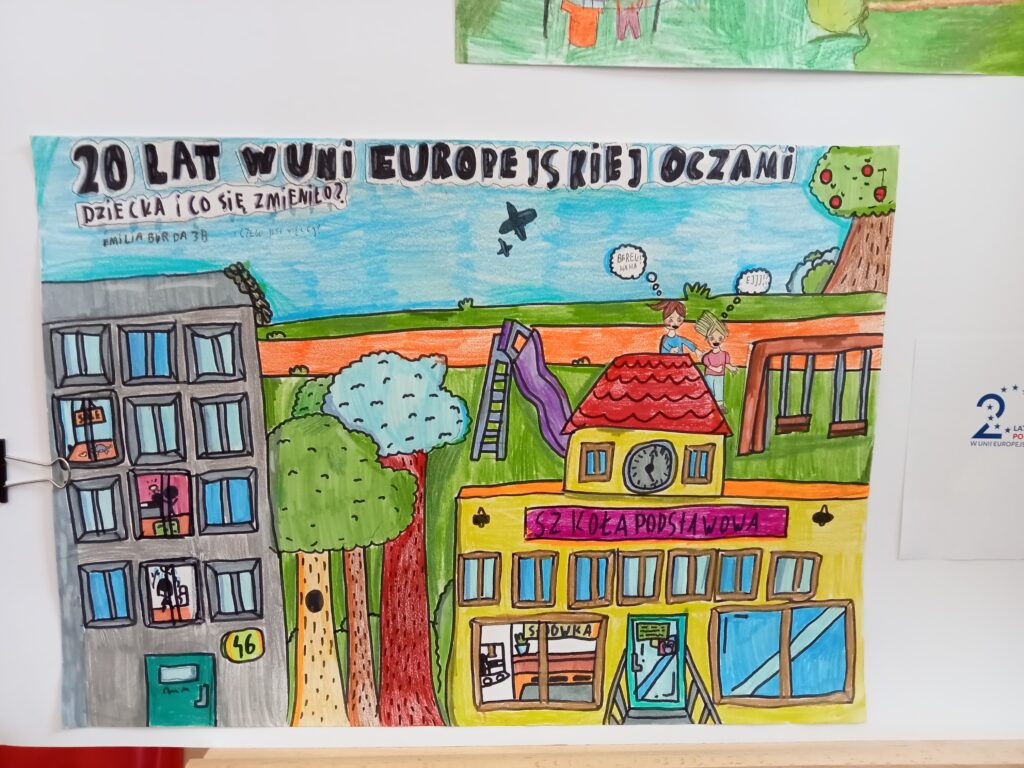 20 LAT W UNI EUROPEJSKIEJ OCZAMI
DZIECKA I CO SIĘ ZMIENIŁO?
EMILIA BURDA 3B
EJJJ!
SZKOŁA PODSTAWOWA
SALE
46
2
LAT
PO
W UNII EUROPEJS